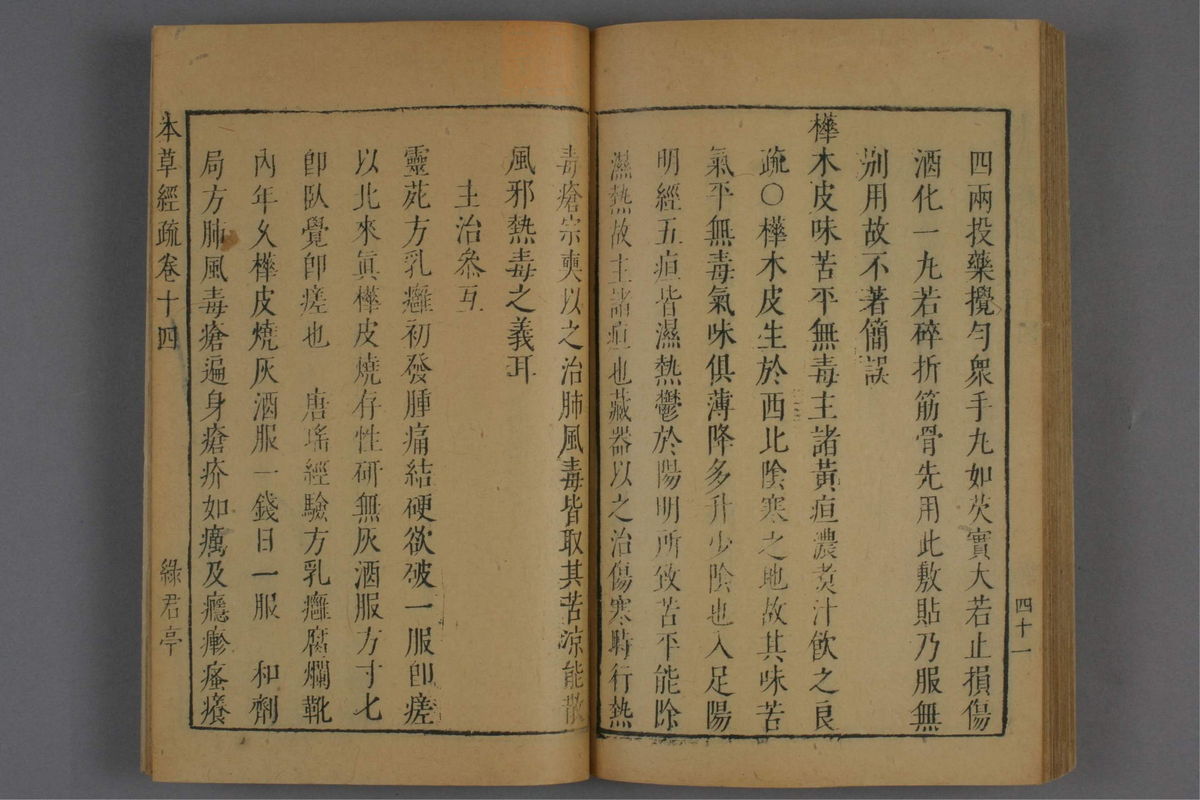 四十一
四兩投藥攪勻衆手丸如芡實大若止損傷
酒化一丸若碎折筋骨先用此敷貼乃服無
別用故不著簡誤
樺木皮味苦平無毒主諸黃疸濃煮汁飲之良
疏○樺木皮生於西北陰寒之地故其味苦
氣平無毒氣味俱薄降多升少陰也入足陽
明經五疸皆濕熱鬱於陽明所致苦平能除
濕熱故主諸疸也藏器以之治傷寒時行熱
毒瘡宗奭以之治肺風毒皆取其苦涼能散
風邪熱毒之義耳
主治叅互
靈苑方乳癰初發腫痛結硬欲破一服卽瘥
以北來眞樺皮燒存性研無灰酒服方寸七
卽臥覺卽瘥也　唐瑤經驗方乳癰腐爛靴
內年久樺皮燒灰酒服一錢日一服　和劑
局方肺風毒瘡遍身瘡疥如癘及癮疹瘙癢
本草經疏卷十四
綠君亭